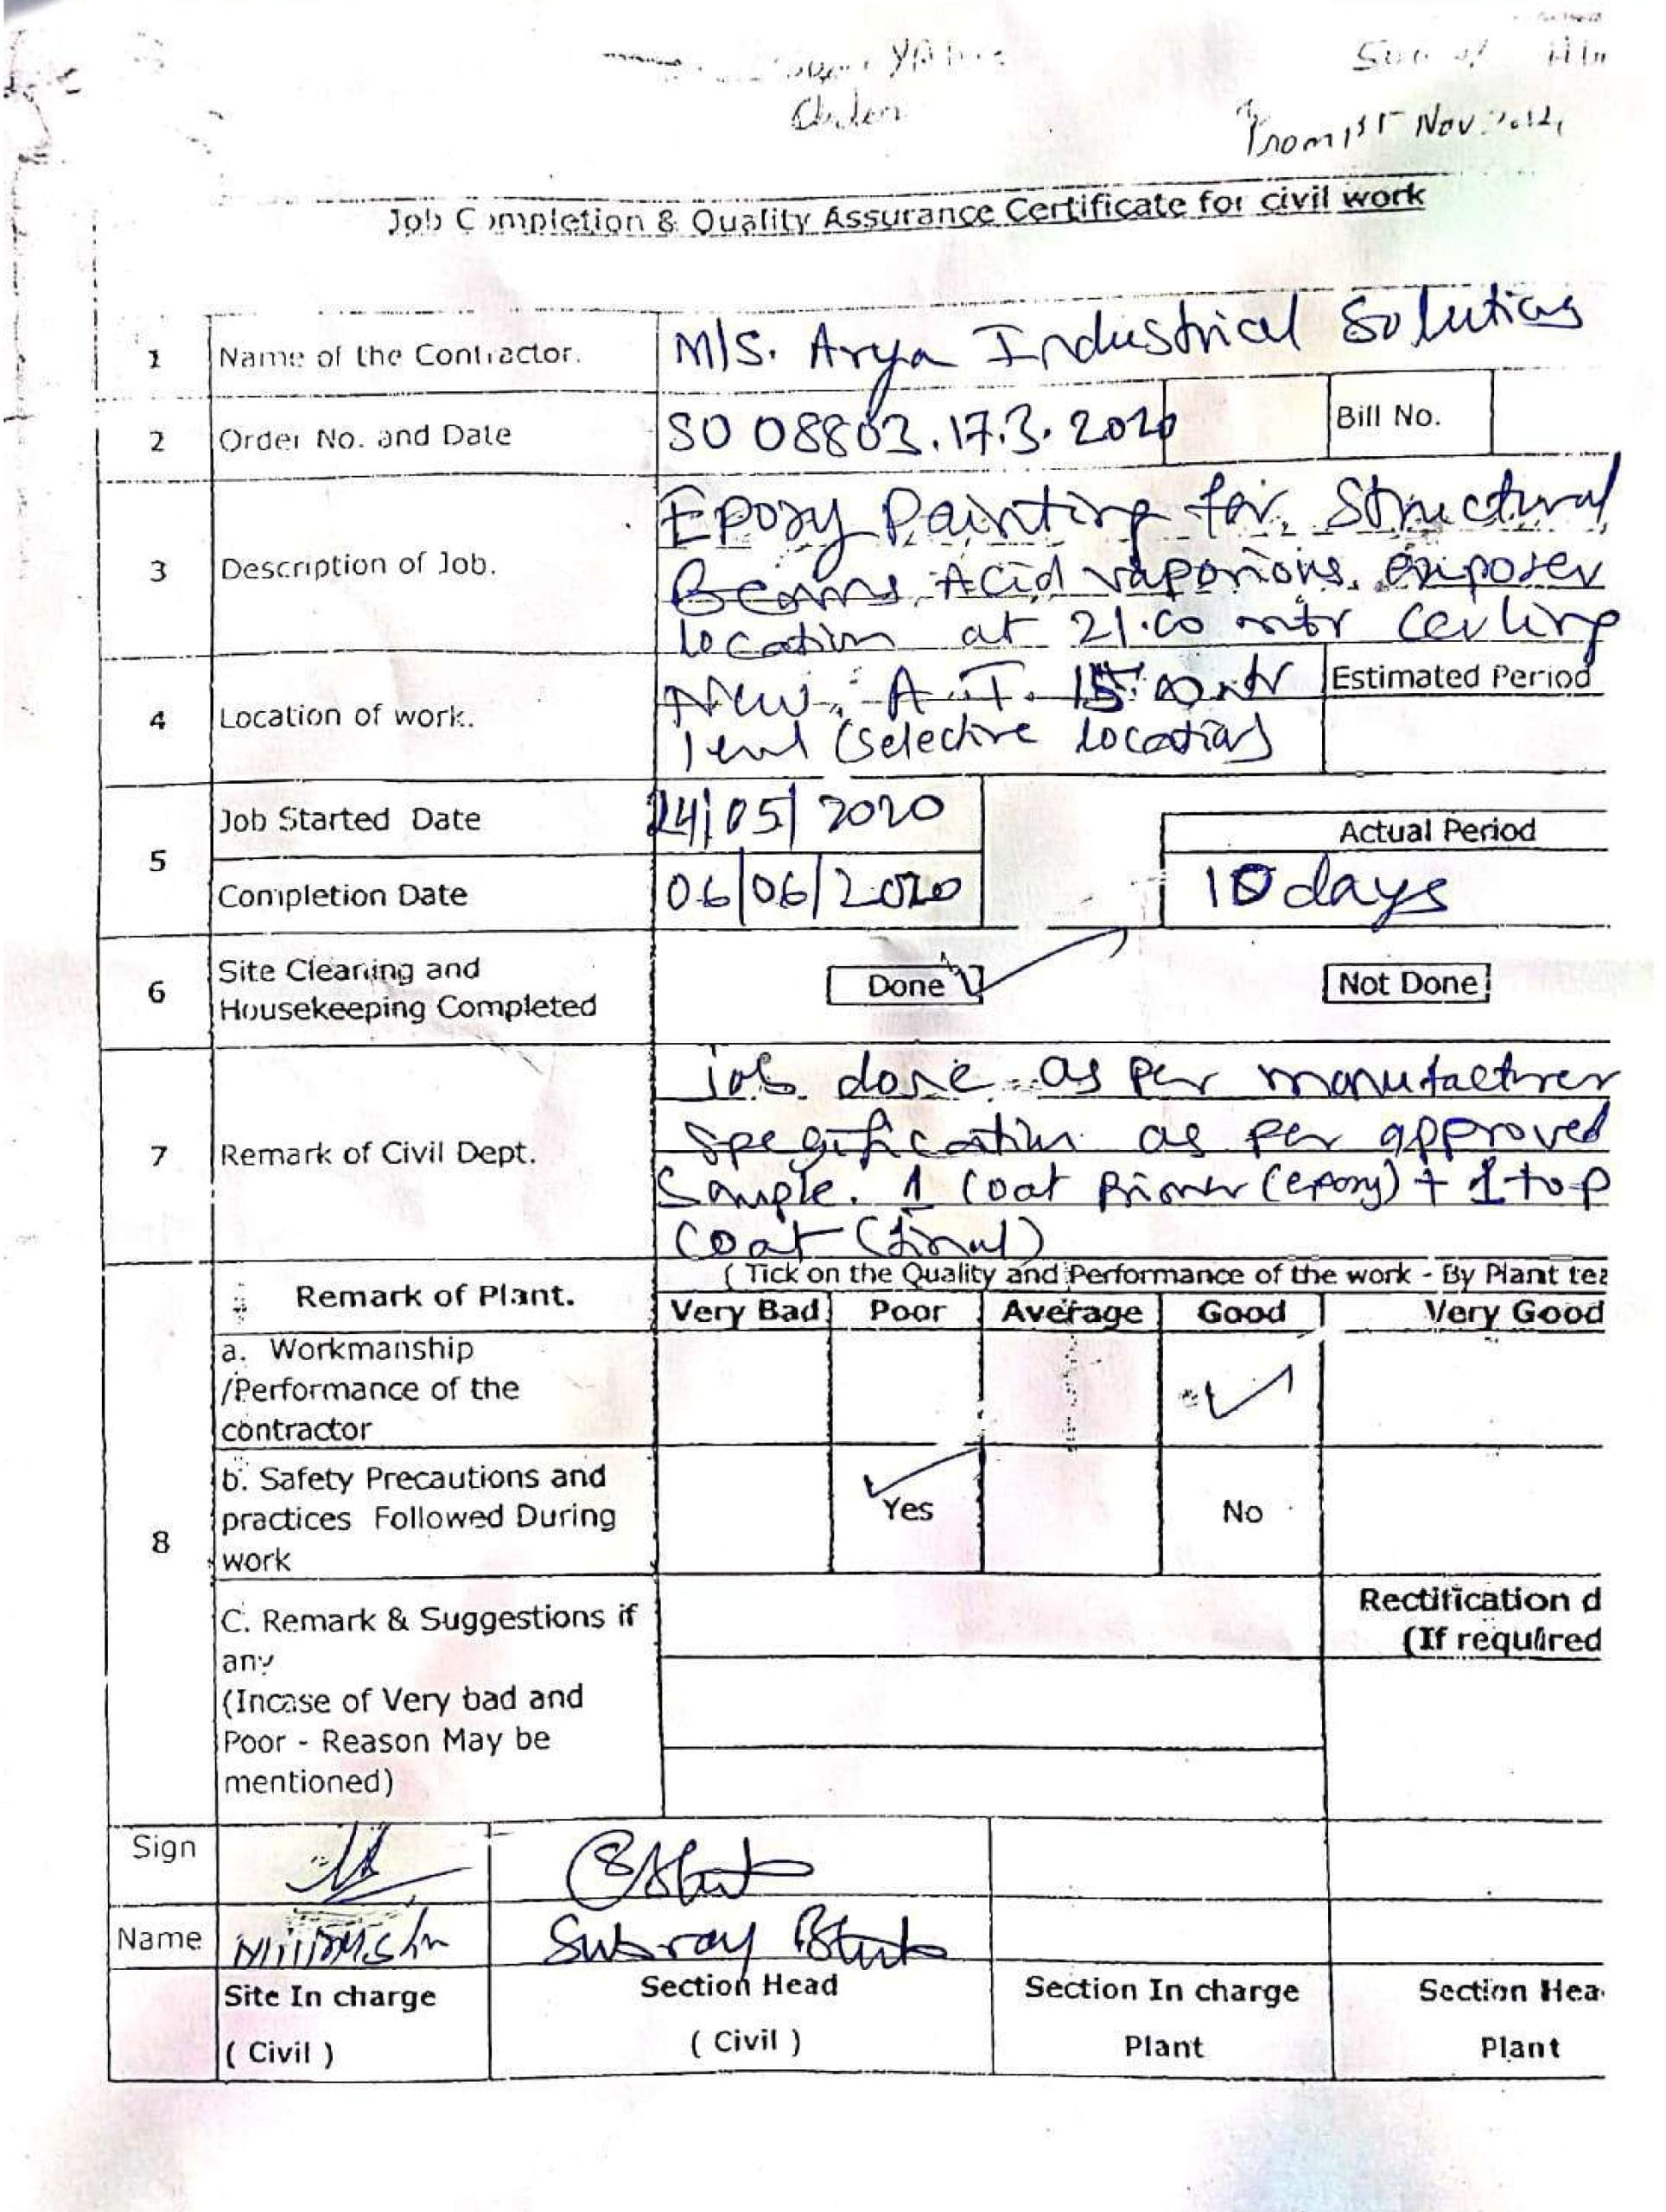 From 1st Nov
Job Completion & Quality Assurance Certificate for civil work
1 Name of the Contractor. M/S. Arya Industrial Solutions
2 Order No. and Date SO 08803.17.3.2020 Bill No.
3 Description of Job. Epoxy Painting for Structural
Beams, Acid exposer
location at 21.00 mtr Ceiling
4 Location of work. New A.T. 15.00 mtr Estimated Period
level (Selective locations)
5 Job Started Date 24/05/2020 Actual Period
Completion Date 06/06/2020 10 days
6 Site Cleaning and
Housekeeping Completed Done Not Done
7 Remark of Civil Dept. job done as per manufacturer
specification as per approved
Sample. 1 Coat Primer (epoxy) + 1 top
Coat (final)
(Tick on the Quality and Performance of the work - By Plant tea
Remark of Plant. Very Bad Poor Average Good Very Good
a. Workmanship
/Performance of the
contractor
8 b. Safety Precautions and
practices Followed During
work Yes No
C. Remark & Suggestions if
any
(Incase of Very bad and
Poor - Reason May be
mentioned)
Rectification d
(If required
Sign
Name Subray Bhat
Site In charge Section Head Section In charge Section Hea
( Civil ) ( Civil ) Plant Plant